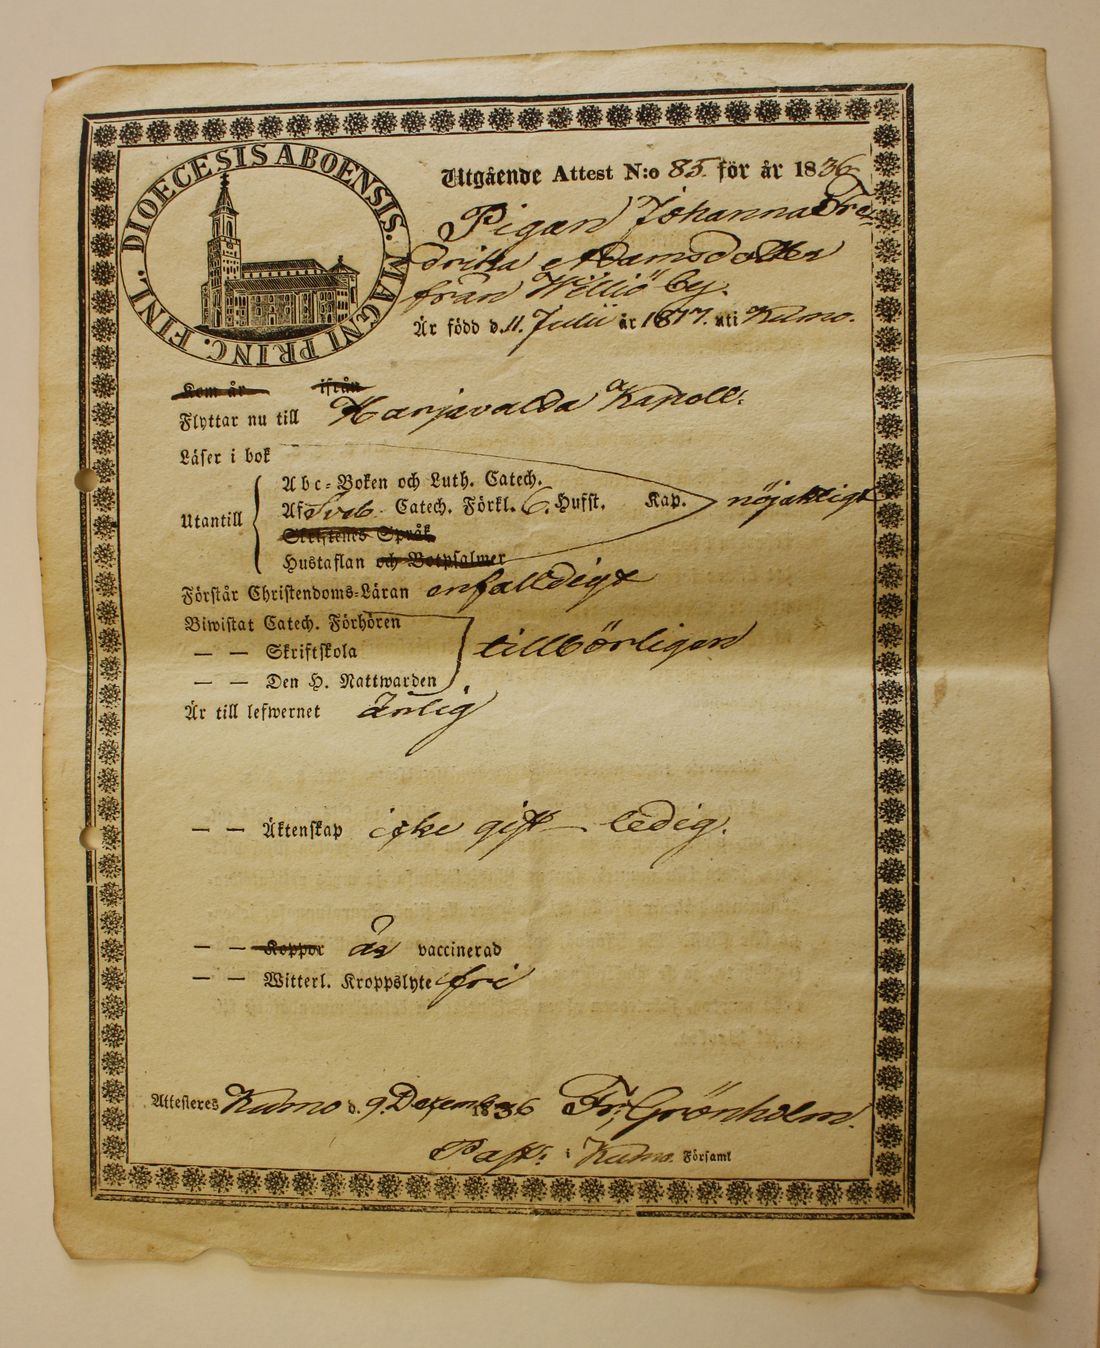 DIOECESIS ABOENSIS. MAGNI PRINC. FINL.
Utgående Attest N:o 85. för år 1836
Pigan Johanna Fre-
drika Adamsdotter
från Williö by.
Är född d. 11. Julii år 1817. uti Kumo.
Kom år ifrån
Flyttar nu till Harjavalda Kapell:
Läser i bok
Abc-Boken och Luth. Catech.
Utantill Af Sveb. Catech. Förkl. 6. Hufst. Kap. nöjaktligt
Skriftenes Språk
Hustaflan och Botpsalmer
Förstår Christendoms-Läran enfalldigt
Biwistat Catech. Förhören
— — Skriftskola tillbörligen
— — Den H. Nattwarden
Är till lefwernet ärlig
— — Äktenskap icke gift – ledig.
— — Koppor är vaccinerad
— — Witterl. Kroppslyte fri
Attesteres Kumo d. 9. Dezemb. 1836 Fr. Grönholm.
Past: i Kumo. Församl